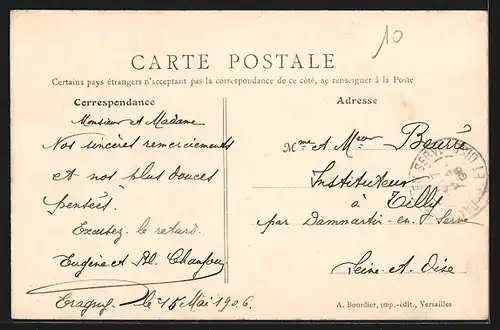 10
CARTE POSTALE
Certains pays étrangers n'acceptant pas la correspondance de ce côté, se renseigner à la Poste
Correspondance
Monsieur et Madame
Nos sincères remerciements
et nos plus douces
pensées.
Excusez le retard.
Eugène et Bl.
le 15 Mai 1906.
Adresse
Mme et Meur
Instituteur
à Tilly
par Dammartin-en-Serve
Seine-et-Oise
A. Bourdier, imp.-édit., Versailles